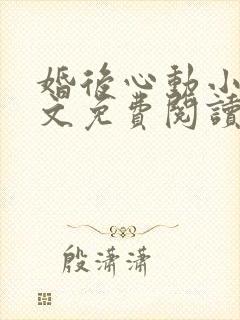 婚後心動小
文免費閱讀
殷瀟瀟